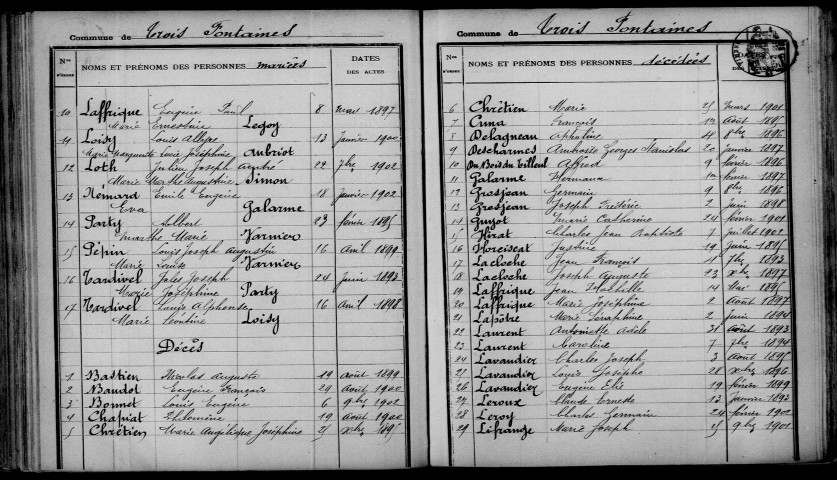 Commune de Trois Fontaines
Nos d'ordre NOMS ET PRÉNOMS DES PERSONNES mariées DATES DES ACTES
10 Laffrique Eugène Paul 8 mai 1897
Marie Ernestine Legoy
11 Loisy Louis 13 Janvier 1900
Marie Marguerite Louise Joséphine Aubriot
12 Loth Julien Joseph André 22 7bre 1902
Marie Marthe Augustine Simon
13 Rémard Emile Eugène 18 Janvier 1902
Eva Galarme
14 Party Albert 23 février 1895
Marthe Marie Varnier
15 Pépin Louis Joseph Augustin 16 Avril 1899
Marie Louise Varnier
16 Tardivel Jules Joseph 24 Juin 1893
Marie Joséphine Party
17 Tardivel Louis Alphonse 16 Avril 1898
Marie Léontine Loisy
Décès
1 Bastien Nicolas Auguste 19 Août 1899
2 Baudot Eugène François 29 Août 1900
3 Bonnet Louis Eugène 6 9bre 1902
4 Chapiat Philomène 19 Août 1900
5 Chrétien Marie Angélique Joséphine 25 Xbre 1895
Commune de Trois Fontaines
Nos d'ordre NOMS ET PRÉNOMS DES PERSONNES décédées
6 Chrétien Marie 25 mars 1901
7 Cuna François 12 Août 1895
8 Delagneau Appoline 4 8bre 1896
9 Descharmes Ambroise Georges Stanislas 20 Janvier 1897
10 Du Bois du Tilleul Alfred 9 février 1896
11 Galarme Hermance 12 février 1897
12 Grosjean Germain 9 8bre 1896
13 Grosjean Joseph Frédéric 2 Juin 1898
14 Guyot Marie Catherine 24 février 1901
15 Hirat Charles Jean Baptiste 7 Juillet 1902
16 Horiscat Justine 19 Juin 1895
17 Lacloche Jean François 11 7bre 1893
18 Lacloche Joseph Auguste 23 Xbre 1897
19 Laffrique Jean 14 Mai 1895
20 Laffrique Marie Joséphine 2 Août 1897
21 Lapôtre Marie Séraphine 2 Juin 1894
22 Laurent Antoinette Adèle 31 Août 1893
23 Laurent Caroline 7 7bre 1894
24 Lavaudier Charles Joseph 3 Août 1895
25 Lavaudier Louis Joseph 28 Xbre 1896
26 Lavaudier Eugène Elie 19 février 1899
27 Leroux Claude Ernest 13 Janvier 1893
28 Leroy Charles Germain 24 février 1902
29 Lifrange Marie Joseph 25 9bre 1901